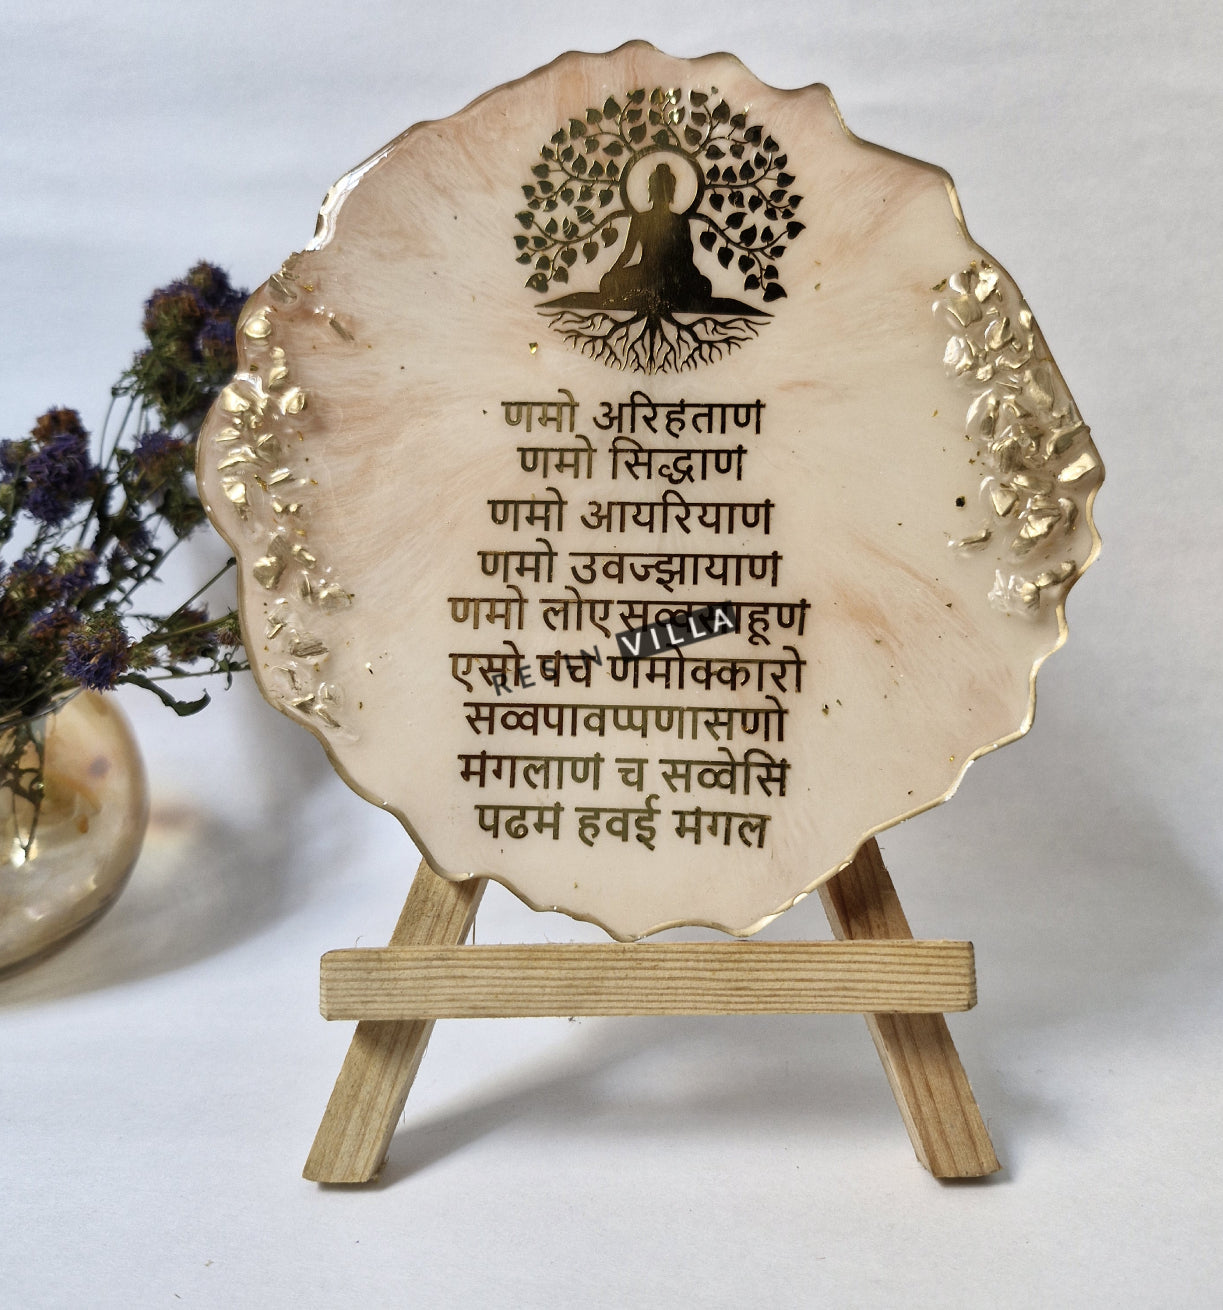 णमो अरिहंताणं
णमो सिद्धाणं
णमो आयरियाणं
णमो उवज्झायाणं
णमो लोए सव्वसाहूणं
एसो पंच णमोक्कारो
सव्वपावप्पणासणो
मंगलाणं च सव्वेसिं
पढमं हवई मंगल
RESIN VILLA